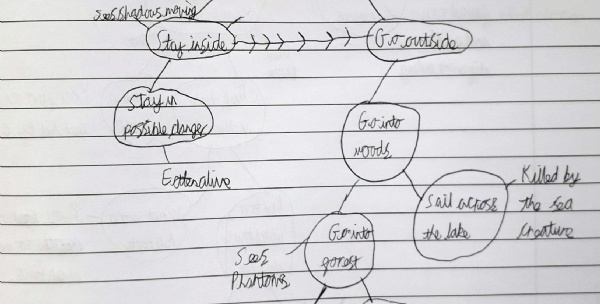 sees shadows moving
Stay inside
Go outside
Stay in
possible danger
Eaten alive
Go into
woods
Sail across
the lake
Killed by
the sea
creature
Go into
forest
Sees
Phantoms